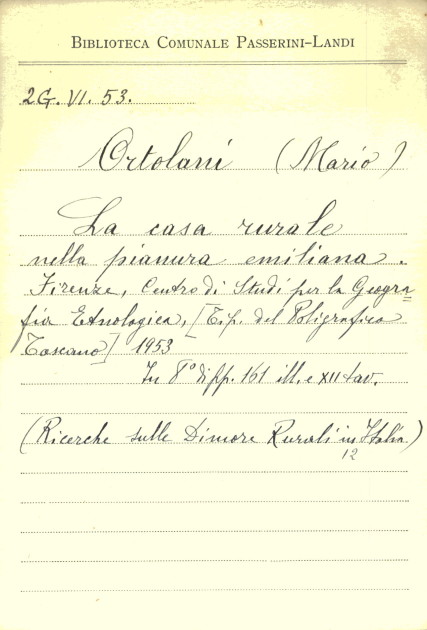 BIBLIOTECA COMUNALE PASSERINI-LANDI
2G. VI. 53.
Ortolani (Mario)
La casa rurale
nella pianura emiliana.
Firenze, Centro di Studi per la Geogra-
fia Etnologica, [Tip. del Poligrafico
Toscano] 1953
In 8° di pp. 161 ill. e XII tav.
(Ricerche sulle Dimore Rurali in Italia)
12